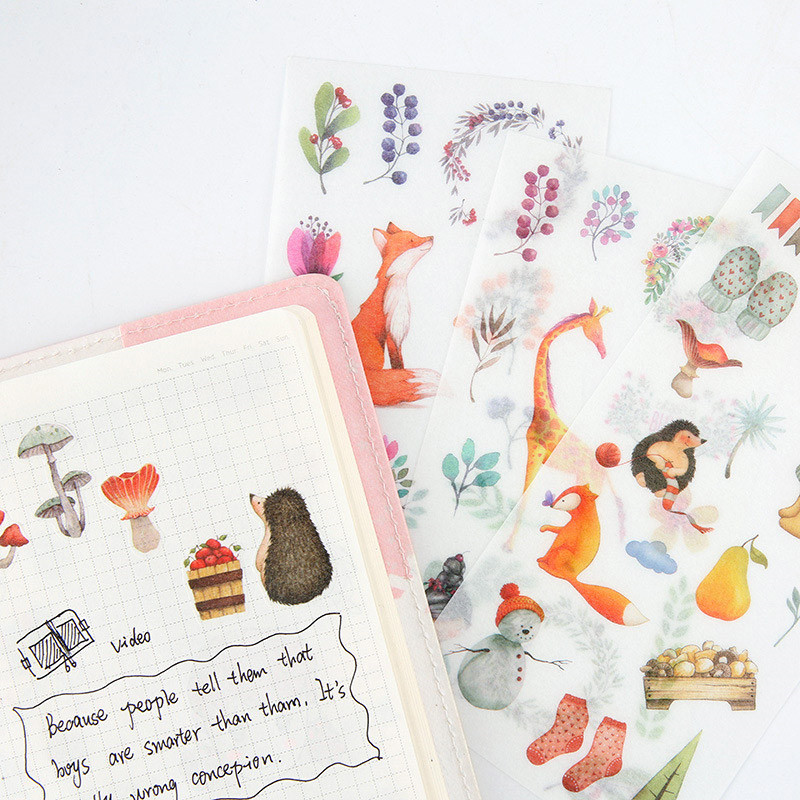 Mon. Tues Wed Thur Fri Sat Sun
video
Because people tell them that
boys are smarter than tham. It's
wrong concepion.